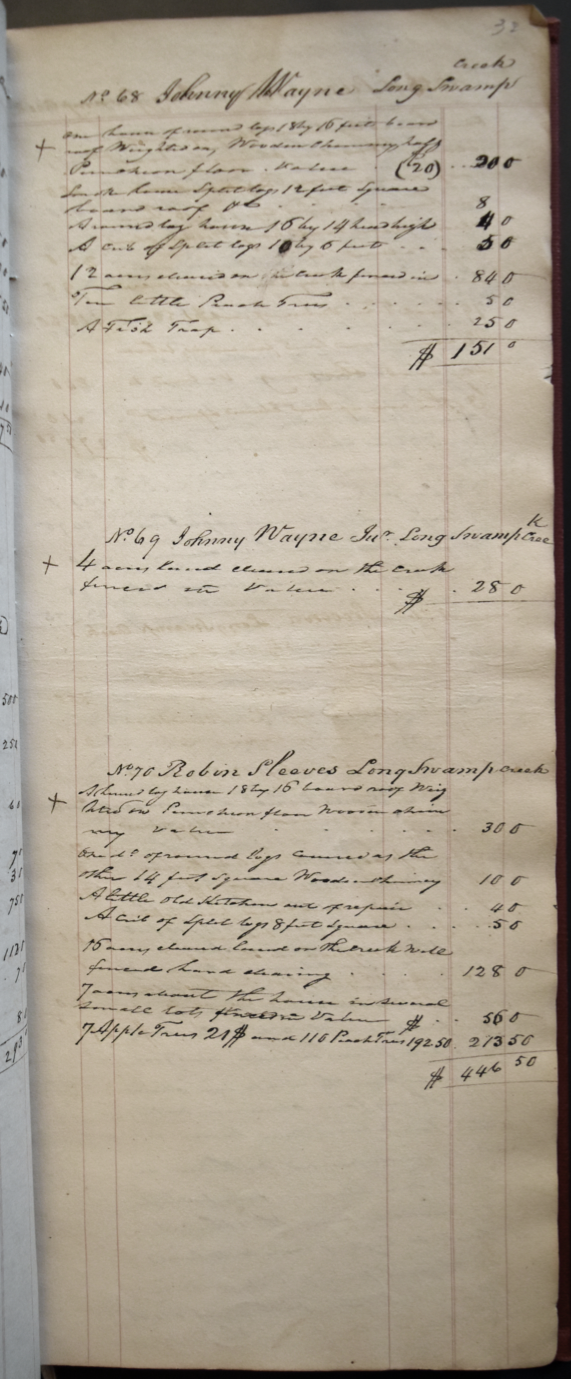 32
Creek
No 68 Johnny Wayne Long Swamp
+ One house of round logs 18 by 16 feet board
roof Weighted on, Wooden Chimney, half
Puncheon floor. Value (20) .. 20 0
Smoke house Split logs 12 feet Square
board roof &c . . . 8
A round log house 16 by 14 head high 4 0
A Crib of Split logs 10 by 6 feet . . . 5 0
12 acres cleared on the Creek fenced in . 84 0
Ten little Peach Trees . . . . . 5 0
A Fish Trap . . . . . . 25 0
$ 151 0
No 69 Johnny Wayne Junr. Long Swamp Creek
+ 4 acres land cleared on the Creek
fenced in Value . . . $ . 28 0
No 70 Robin Sleeves Long Swamp Creek
+ A round log house 18 by 16 board roof Weig
hted on Puncheon floor Wooden chim
ney Value . . . . . . 30 0
One do. of round logs covered as the
other 14 feet Square Wooden Chimney 10 0
A little Old Kitchen out of repair . . 4 0
A Crib of Split logs 8 feet Square . . . 5 0
16 acres cleared land on the Creek Well
fenced hard clearing . . . . 128 0
7 acres about the house in several
small lots fenced in Value $ .. 56 0
7 Apple Trees 21$ and 116 Peach Trees 192 50. 213 50
$ 446 50